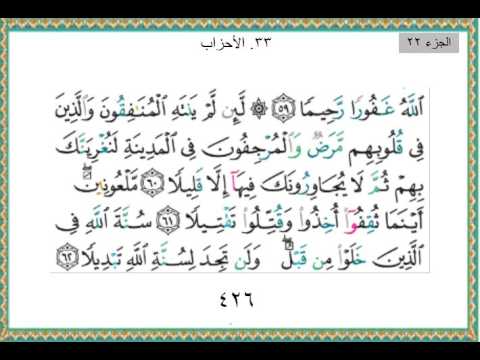 الجزء ٢٢
٣٣. الأحزاب
ٱللَّهُ غَفُورًا رَّحِيمًا ٥٩ ۞ لَّئِن لَّمْ يَنتَهِ ٱلْمُنَـٰفِقُونَ وَٱلَّذِينَ
فِى قُلُوبِهِم مَّرَضٌ وَٱلْمُرْجِفُونَ فِى ٱلْمَدِينَةِ لَنُغْرِيَنَّكَ
بِهِمْ ثُمَّ لَا يُجَاوِرُونَكَ فِيهَآ إِلَّا قَلِيلًا ٦٠ مَّلْعُونِينَ ۖ
أَيْنَمَا ثُقِفُوٓا۟ أُخِذُوا۟ وَقُتِّلُوا۟ تَقْتِيلًا ٦١ سُنَّةَ ٱللَّهِ فِى
ٱلَّذِينَ خَلَوْا۟ مِن قَبْلُ ۖ وَلَن تَجِدَ لِسُنَّةِ ٱللَّهِ تَبْدِيلًا ٦٢
٤٢٦